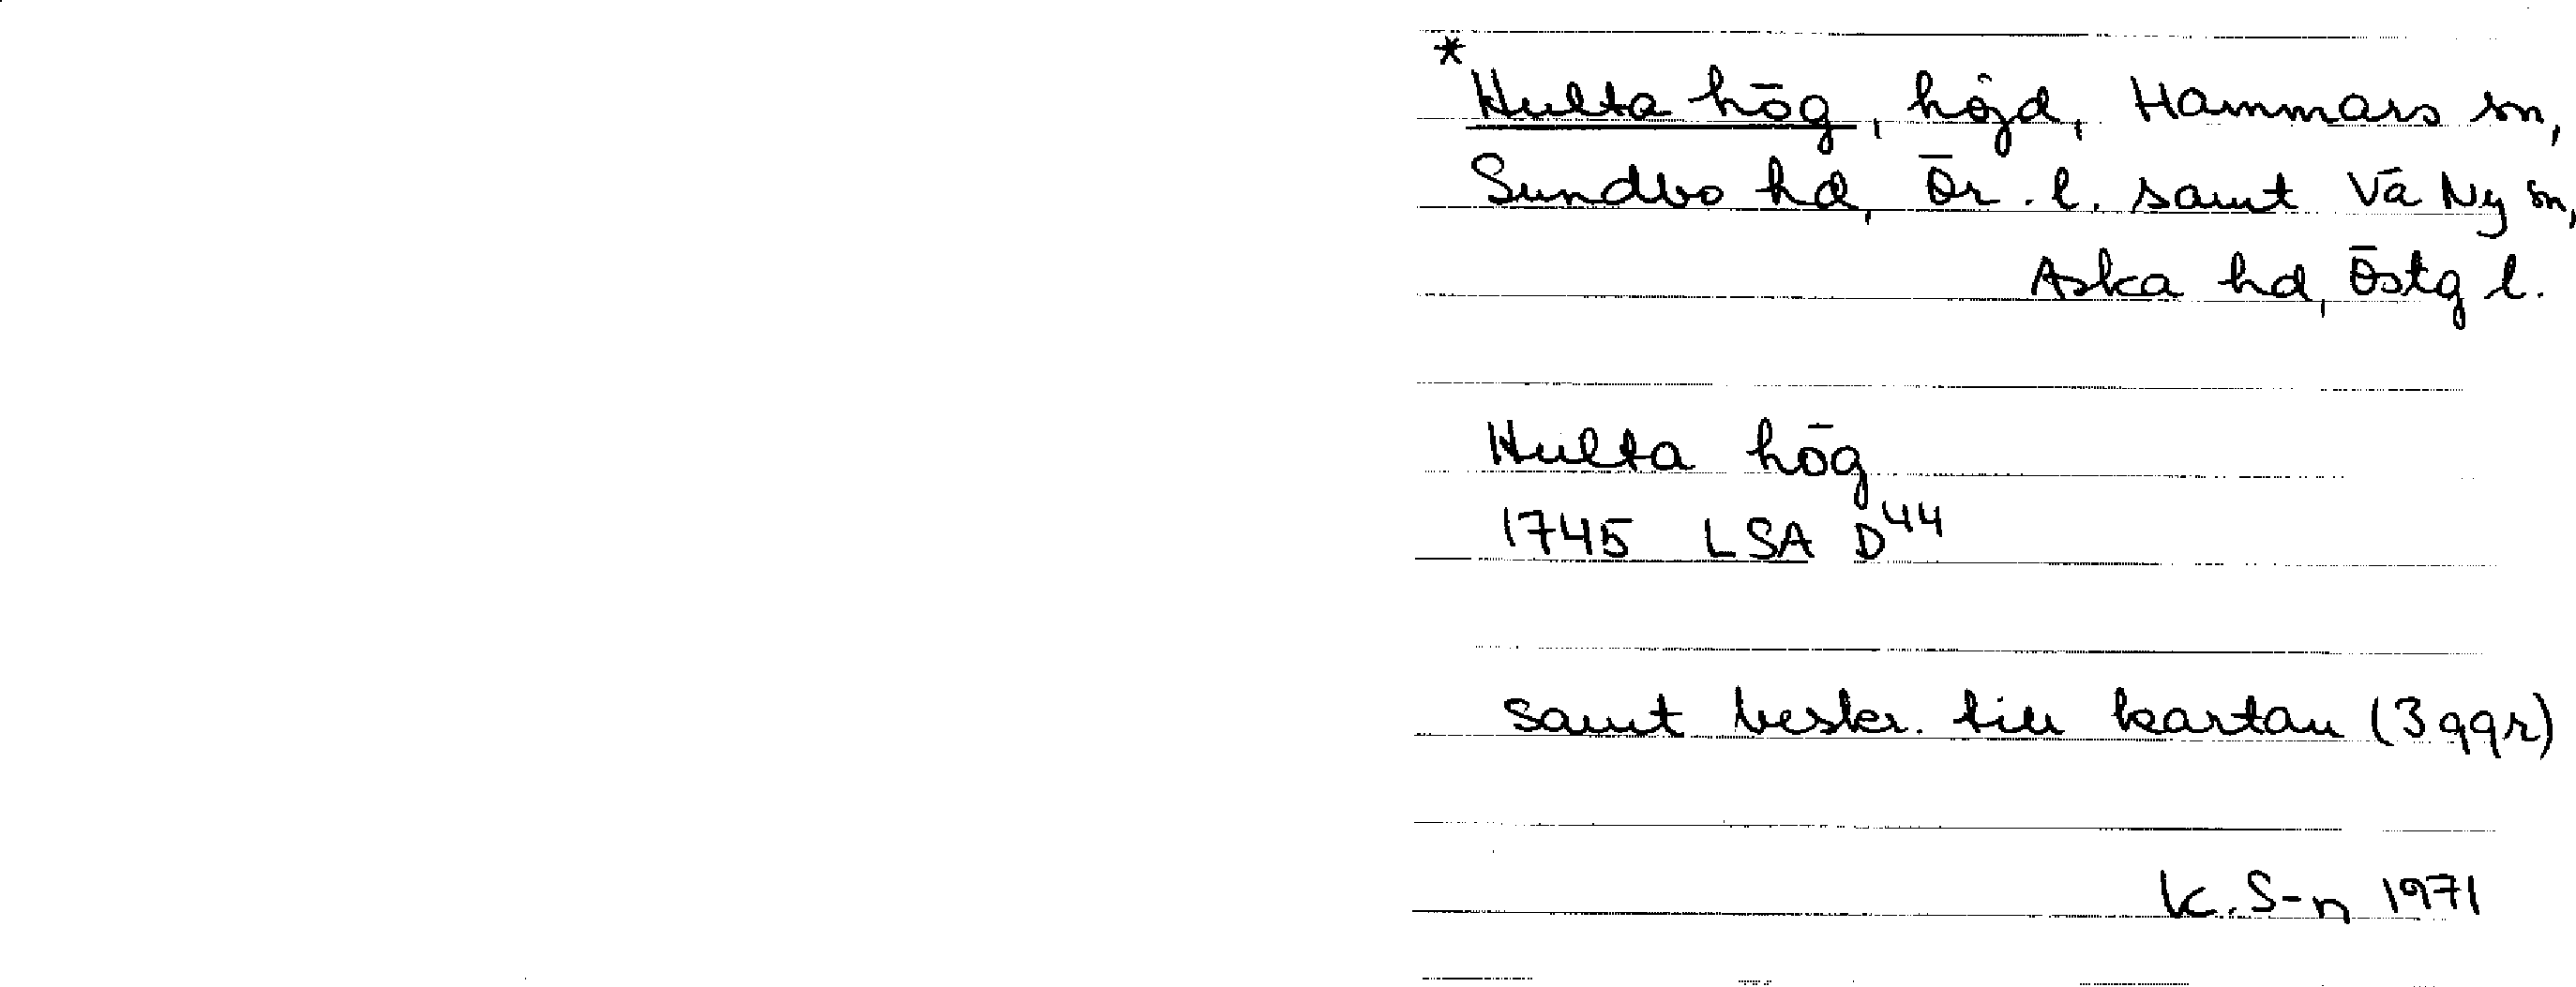 *
Hulta hög, höjd, Hammars sn,
Sundbo hd, Ör. l. samt Vä Ny sn,
Aska hd, Östg l.
Hulta hög
1745 LSA D44
samt beskr. till kartan (3 ggr)
K. S-n 1971